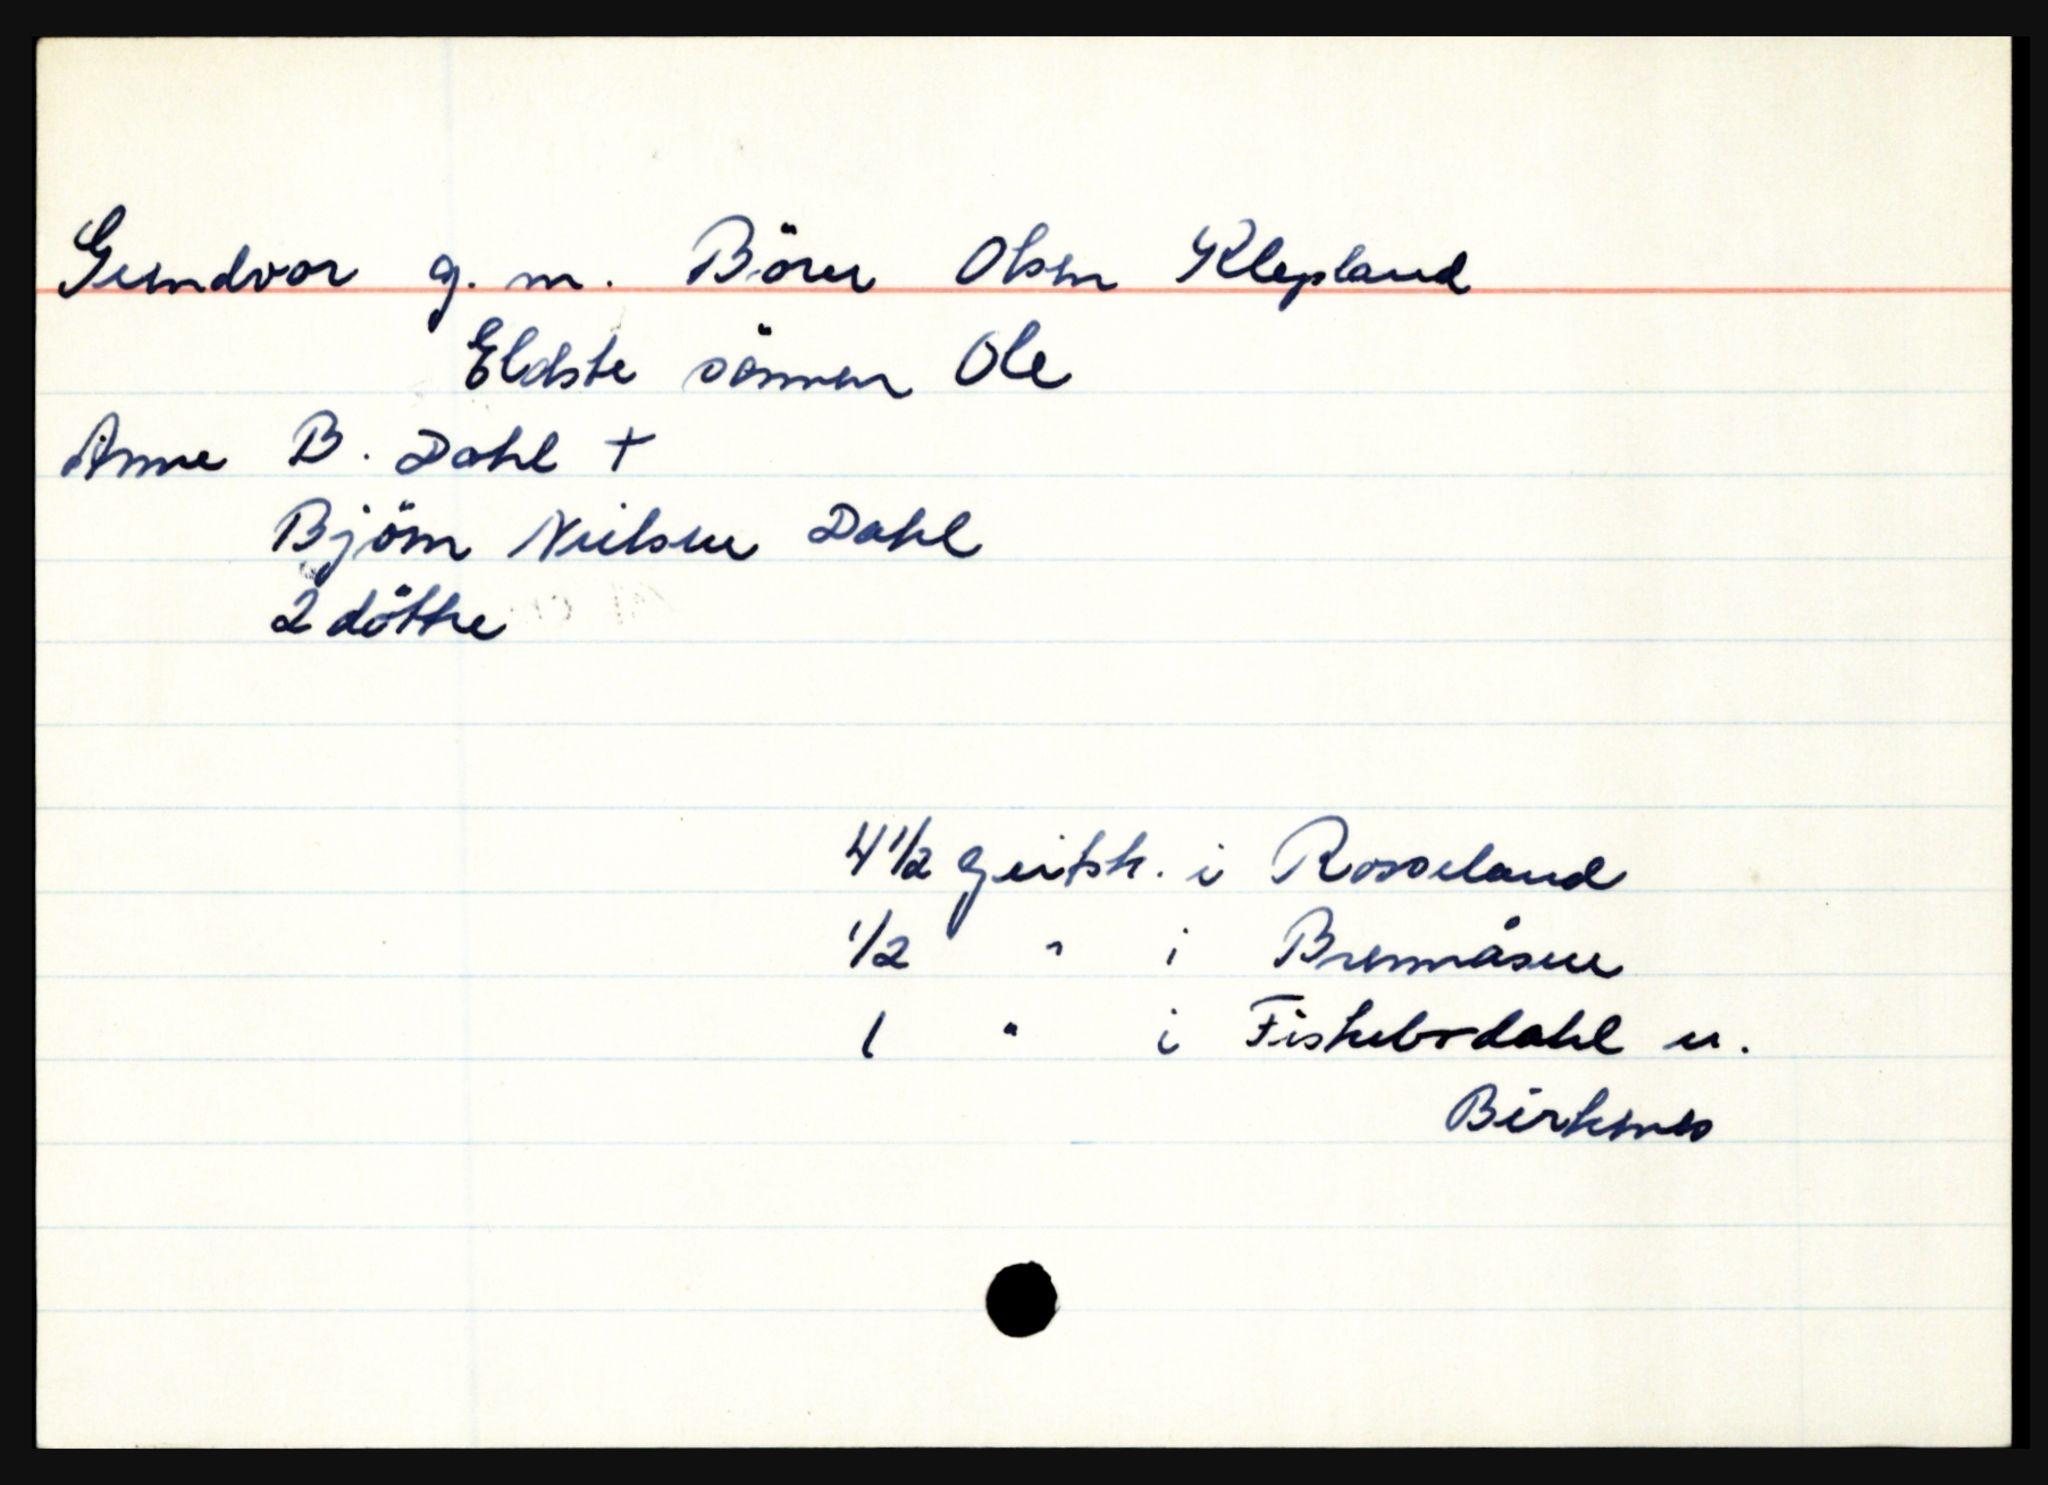 Gundvor g. m. Börer Olsen Klepland
Eldste sönnen Ole
Anne B. Dahl +
Björn Nielsen Dahl
2 döttre
4 1/2 geitsk. i Rosseland
1/2 " i Brennåsen
1 " i Fiskebudahl u.
Birkenes